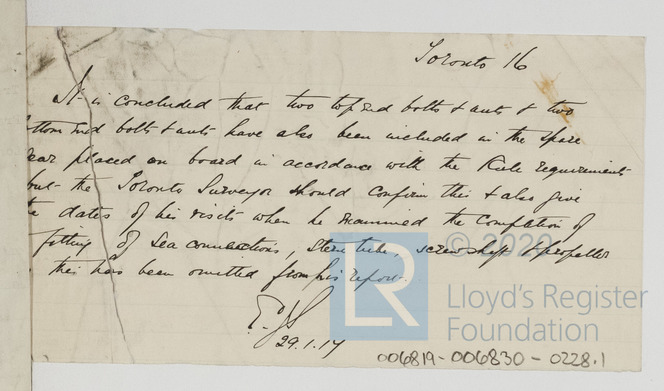 Toronto 16
It is concluded that two top end bolts & nuts & two
ottom end bolts & nuts have also been included in the spare
ear placed on board in accordance with the Rule requirements
but the Toronto Surveyor should confirm this & also give
e dates of his visits when he examined the completion of
fitting of Sea connections, stern tube, screw shaft & propeller
this has been omitted from his report.
29.1.17
LR
© 2020
Lloyd's Register
Foundation
006819-006830-0228.1